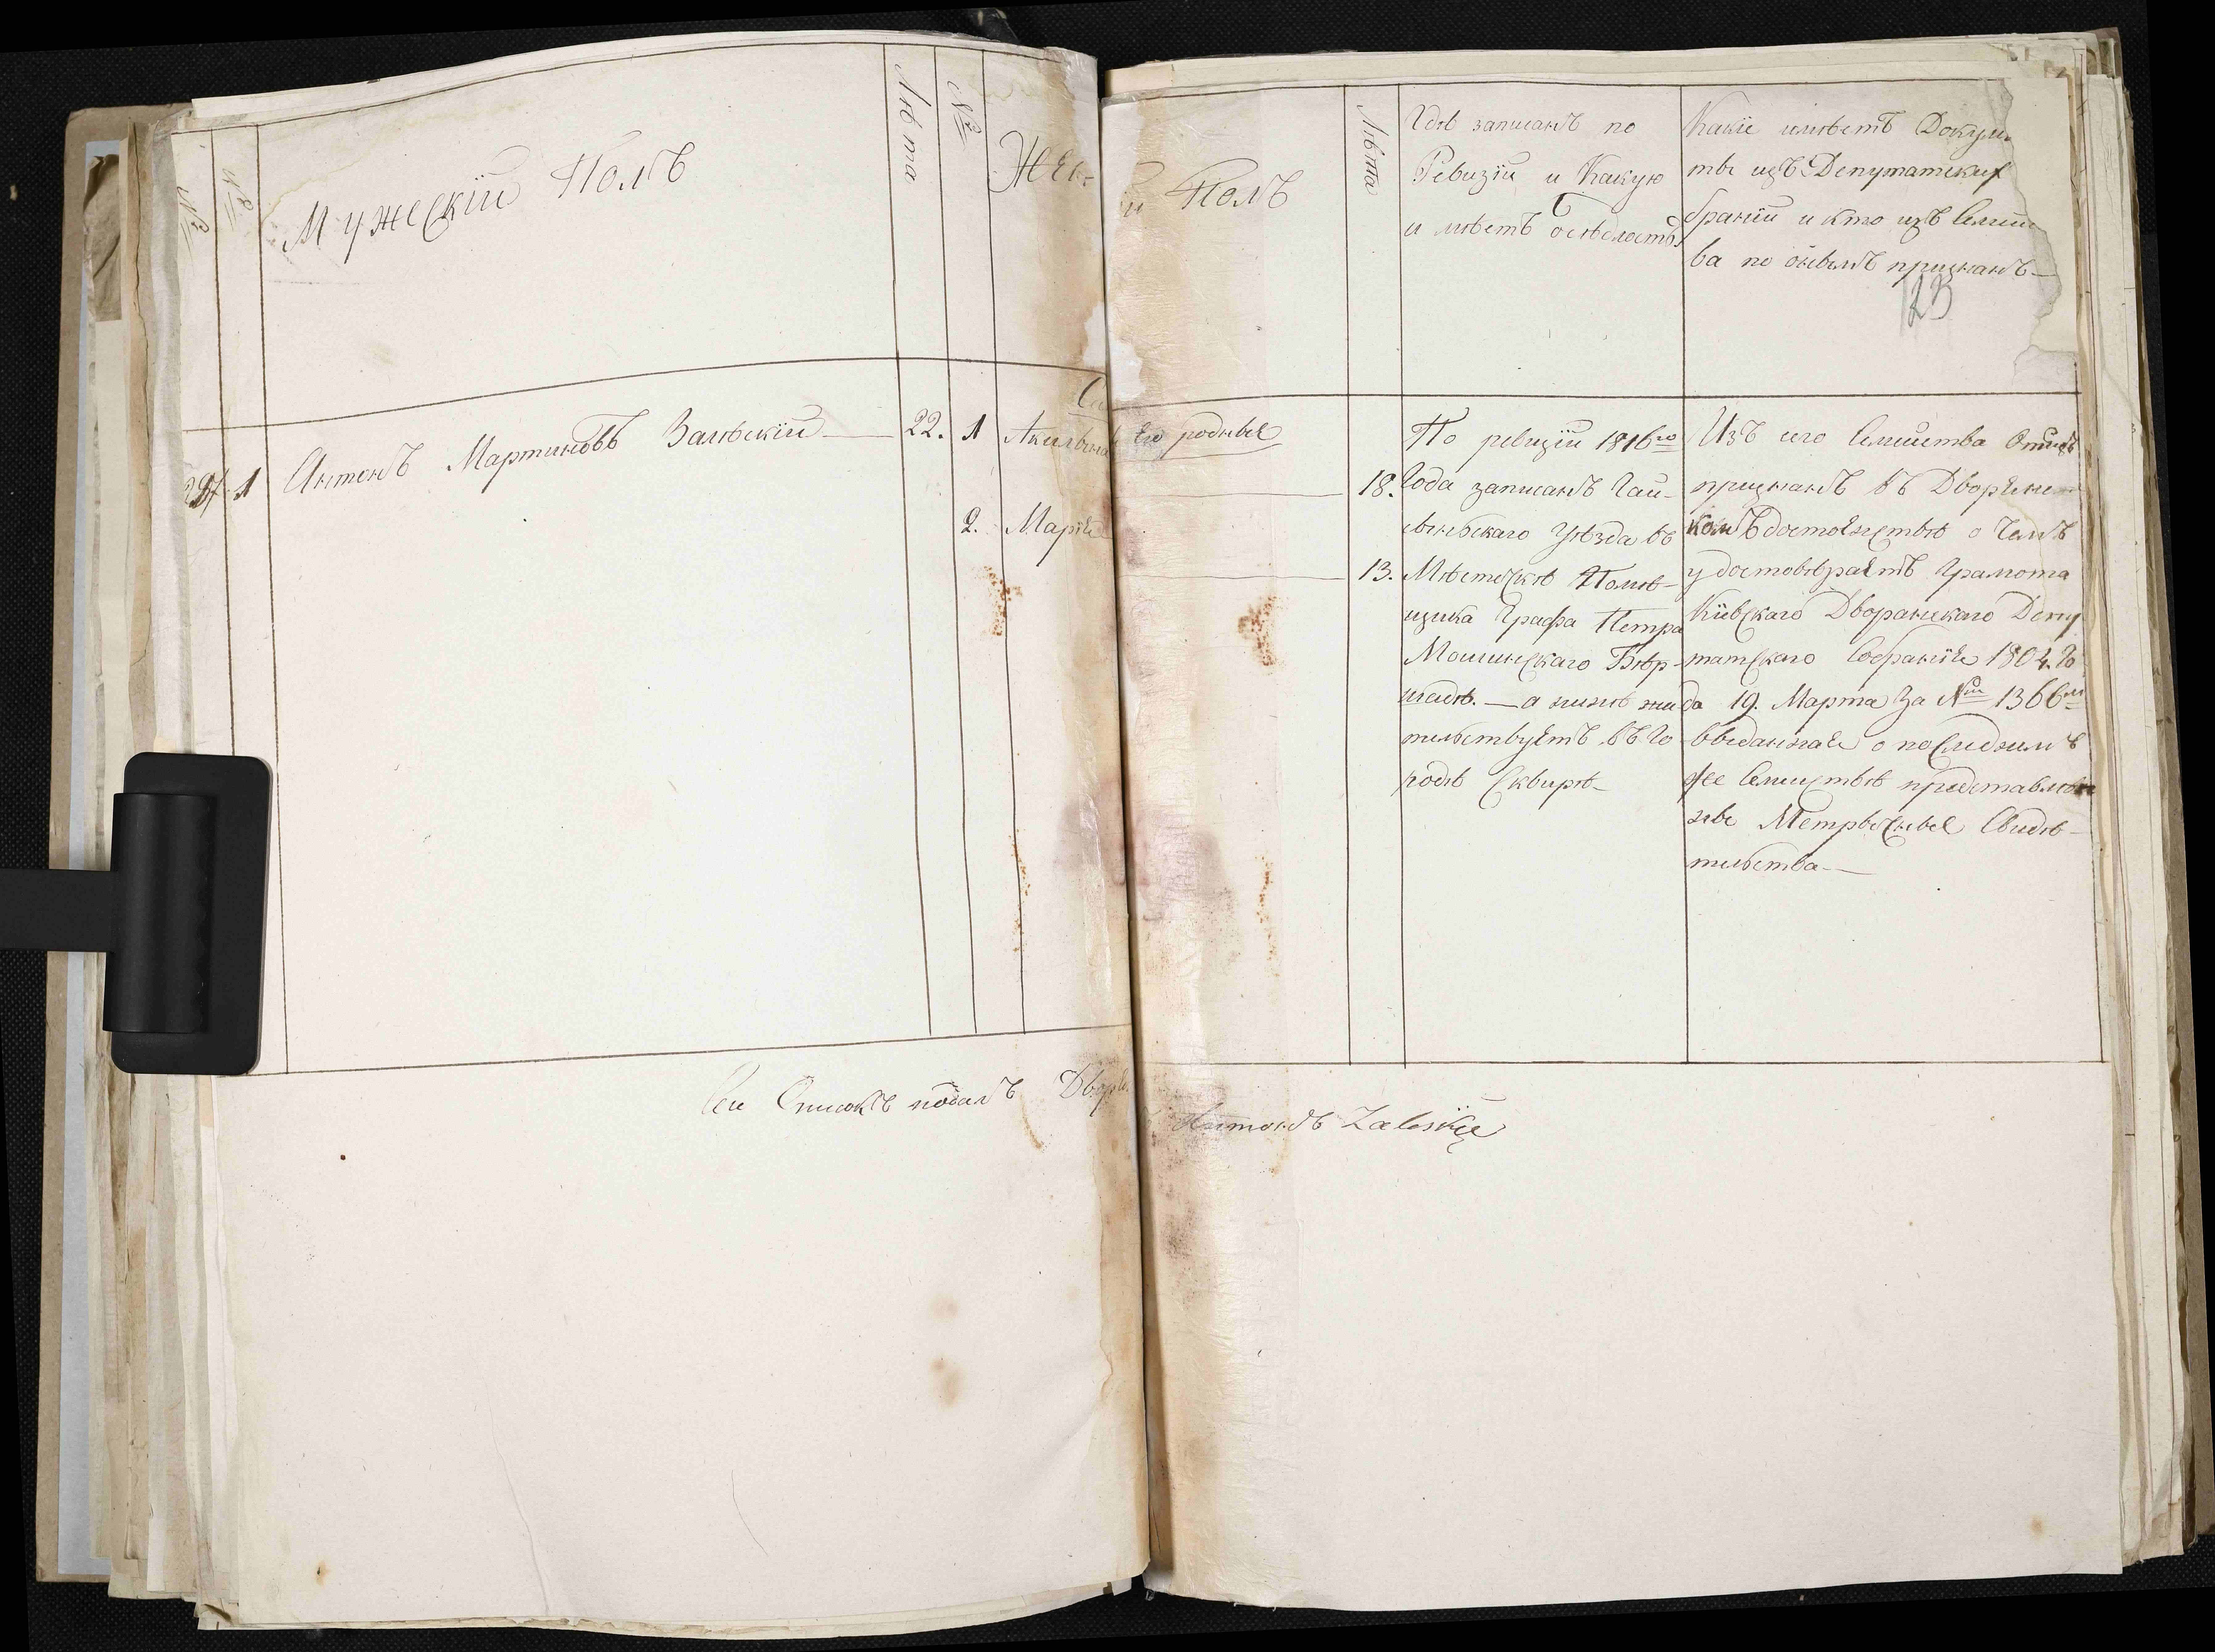 №
№
Мужескій Полъ
Лѣта
№
Жен-
й Полъ
Лѣта
Гдѣ записанъ по
Ревизіи и Какую
имѣетъ осѣдлость
Какіе имѣетъ Докуме
ты изъ Депутатских
браніи и кто изъ Семей
ва по онымъ признанъ
23
1 Антонъ Мартиновъ Залѣскій 22.
его родные
1 Акилина 18.
2. Марія 13.
По ревизіи 1816го
Года записанъ Гай-
сынскаго Уѣзда въ
Мѣстечкѣ Помѣ-
щика Графа Петра
Мошинскаго Бер-
шадѣ. — а нынѣ жи
тельствуетъ въ Го
родѣ Сквирѣ
Изъ его Семейства Отецъ
признанъ въ Дворянс
комъ достоенствѣ о чемъ
удостовѣраетъ Грамота
Кіевскаго Дворанскаго Депу
татскаго Собранія 1804. Го
да 19. Марта За № 1366м
выданная о последнимъ
же Семействѣ представле
ны Метрычные Свидѣ-
тельства —
Сей Списокъ подалъ Дворян
Антонъ Zaleskie